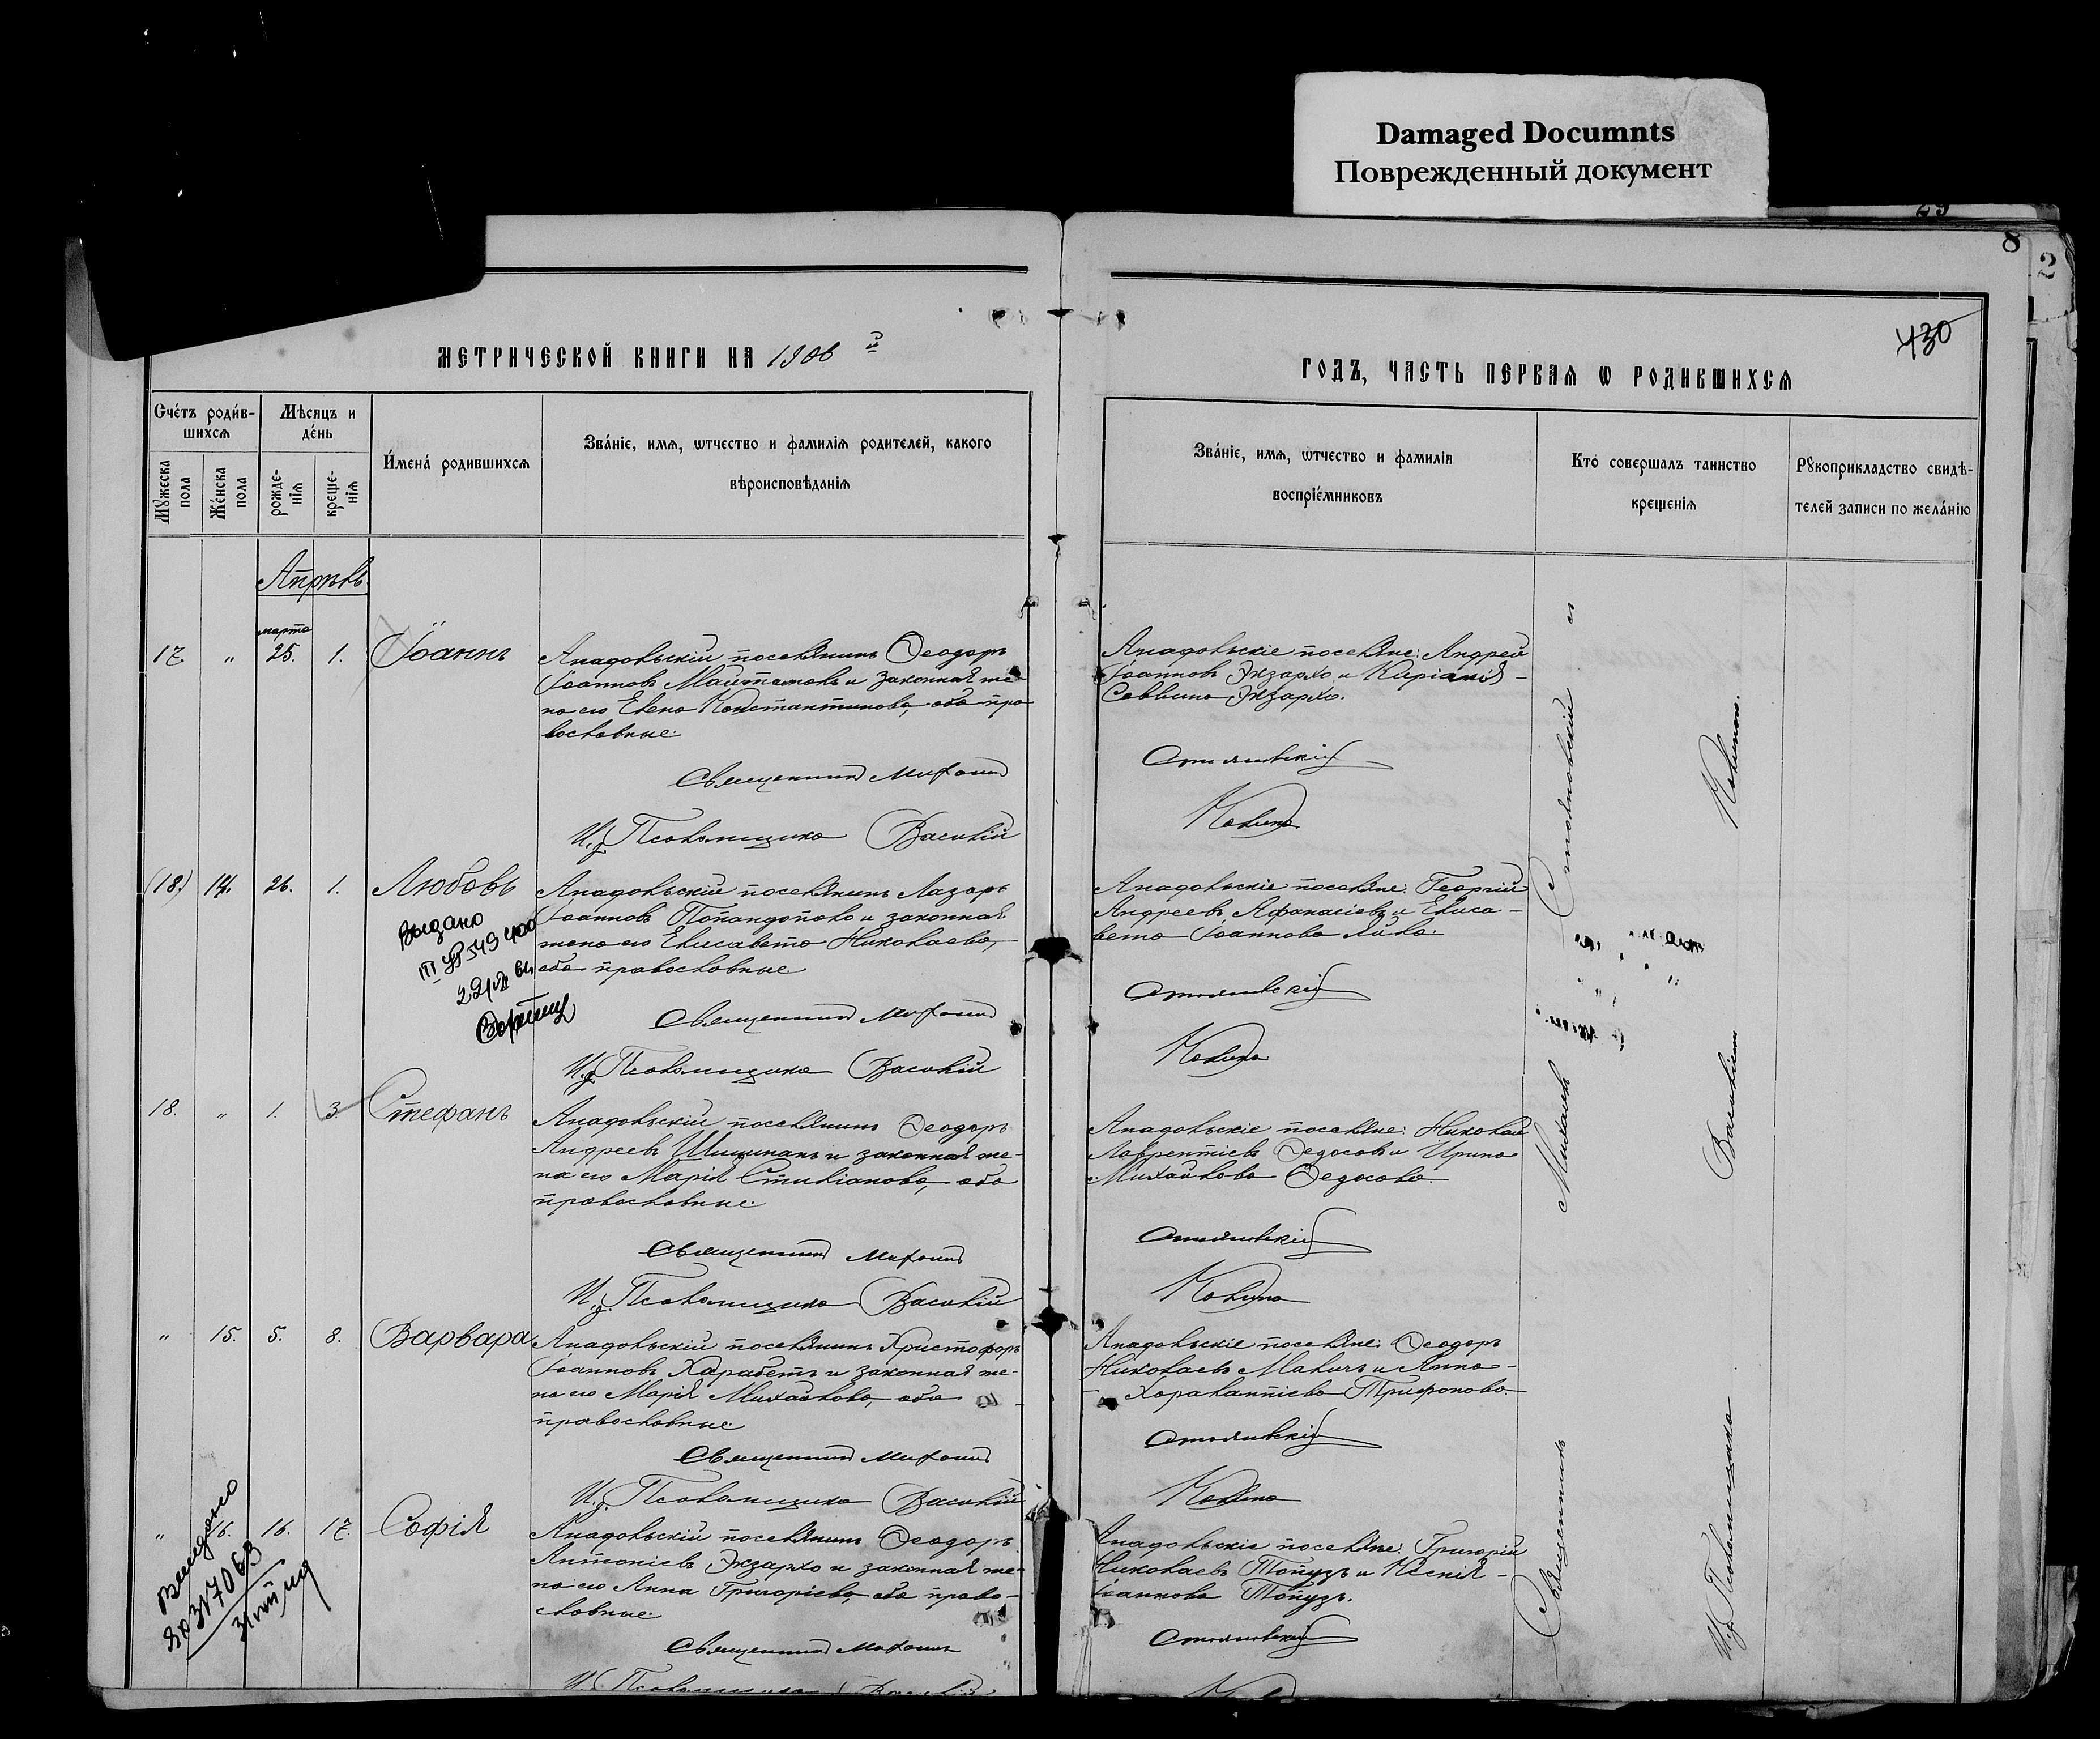 Damaged Documnts
Поврежденный документ
8
2
430
МЕТРИЧЕСКОЙ КНИГИ НА 1906 й
ГОДЪ, ЧАСТЬ ПЕРВАЯ Ѡ РОДИВШИХСЯ
Счётъ роди́в-
шихсѧ
Мужеска
пола
Же́нска
пола
Мѣсяцъ и
де́нь
рожде-
нїѧ
креще-
нїѧ
И́мена́ родившихсѧ
Зва́нїе, имѧ, ѡтчество и фамилїѧ родителей, какого
вѣроисповѣданїѧ
Зва́нїе, имѧ, ѡтчество и фамилїѧ
воспрїе́мниковъ
Кто́ совершалъ таинство
крещенїѧ
Рꙋкоприкладство свидѣ-
телей записи по жела́нїю
Апрѣль
17. " марта 25. 1. Іоаннъ
Анадольскій поселянинъ Ѳеодоръ
Іоанновъ и законная же-
на его Елена Константинова, оба пра-
вославные.
Священникъ Михаилъ
И. д. Псаломщика Василій
Анадольскіе поселяне: Андрей
Іоанновъ Экзархо и Киріакія
Саввина Экзархо.
Стояновскій
(18.) 14. 26. 1. Любовь
Выдано
Анадольскій поселянинъ Лазарь
Іоанновъ Попандопало и законная
жена его Елисавета Николаева,
оба православные
Священникъ Михаилъ
И. д. Псаломщика Василій
Анадольскіе поселяне: Георгій
Андреевъ Афанасіевъ и Елиса-
вета Іоаннова
Стояновскій
18. " 1. 3. Стефанъ
Анадольскій поселянинъ Ѳеодоръ
Андреевъ Шишманъ и законная же-
на его Марія Стиліанова, оба
православные.
Священникъ Михаилъ
И. д. Псаломщика Василій
Анадольскіе поселяне: Николай
Лаврентіевъ Ѳедосовъ и Ирина
Михайлова Ѳедосова.
Стояновскій
" 15. 5. 8. Варвара
Анадольскій поселянинъ Христофоръ
Іоанновъ Харабетъ и законная же-
на его Марія Михайлова, оба
православные.
Священникъ Михаилъ
И. д. Псаломщика Василій
Анадольскіе поселяне: Ѳеодоръ
Николаевъ и Анна
Харалампіева Трифонова.
Стояновскій
" 16. 16. 17. Софія
Выдано
Анадольскій поселянинъ Ѳеодоръ
Антоніевъ Экзархо и законная же-
на его Анна Григоріева, оба право-
славные.
Священникъ Михаилъ
И. д. Псаломщика Василій
Анадольскіе поселяне: Григорій
Николаевъ Топузъ и Ксенія
Іоаннова Топузъ.
Стояновскій
Священникъ Михаилъ Стояновскій и
И. д. Псаломщика Василій